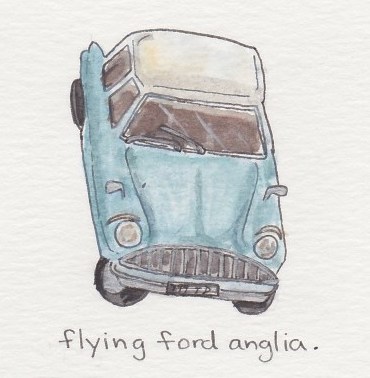 flying ford anglia.